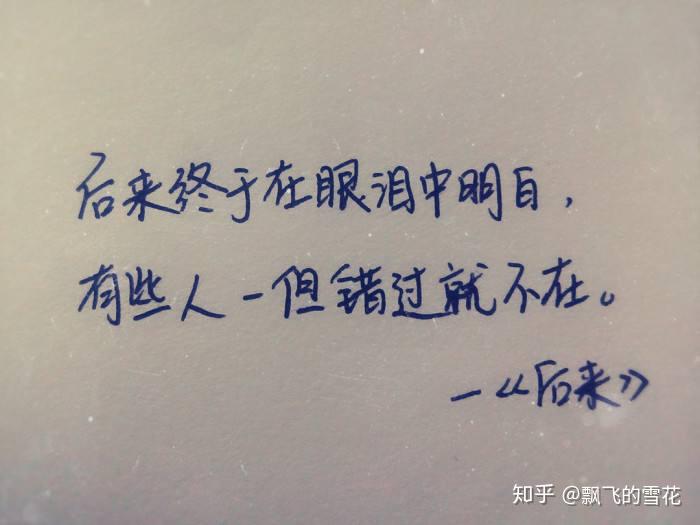 后来终于在眼泪中明白，
有些人一但错过就不在。
—《后来》
知乎 @飘飞的雪花